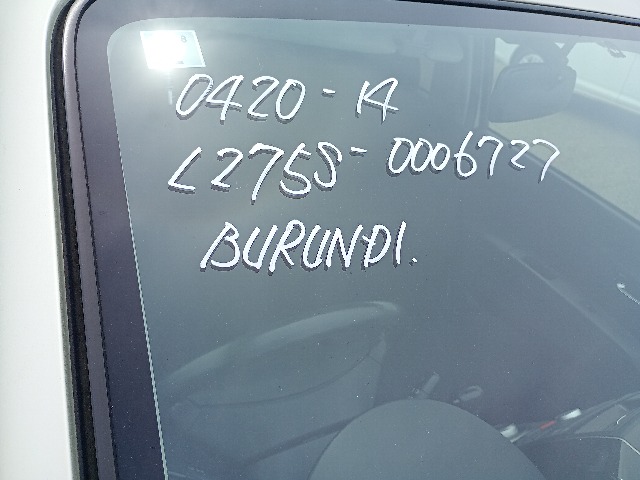 0420-14
L275S-0006727
BURUNDI.